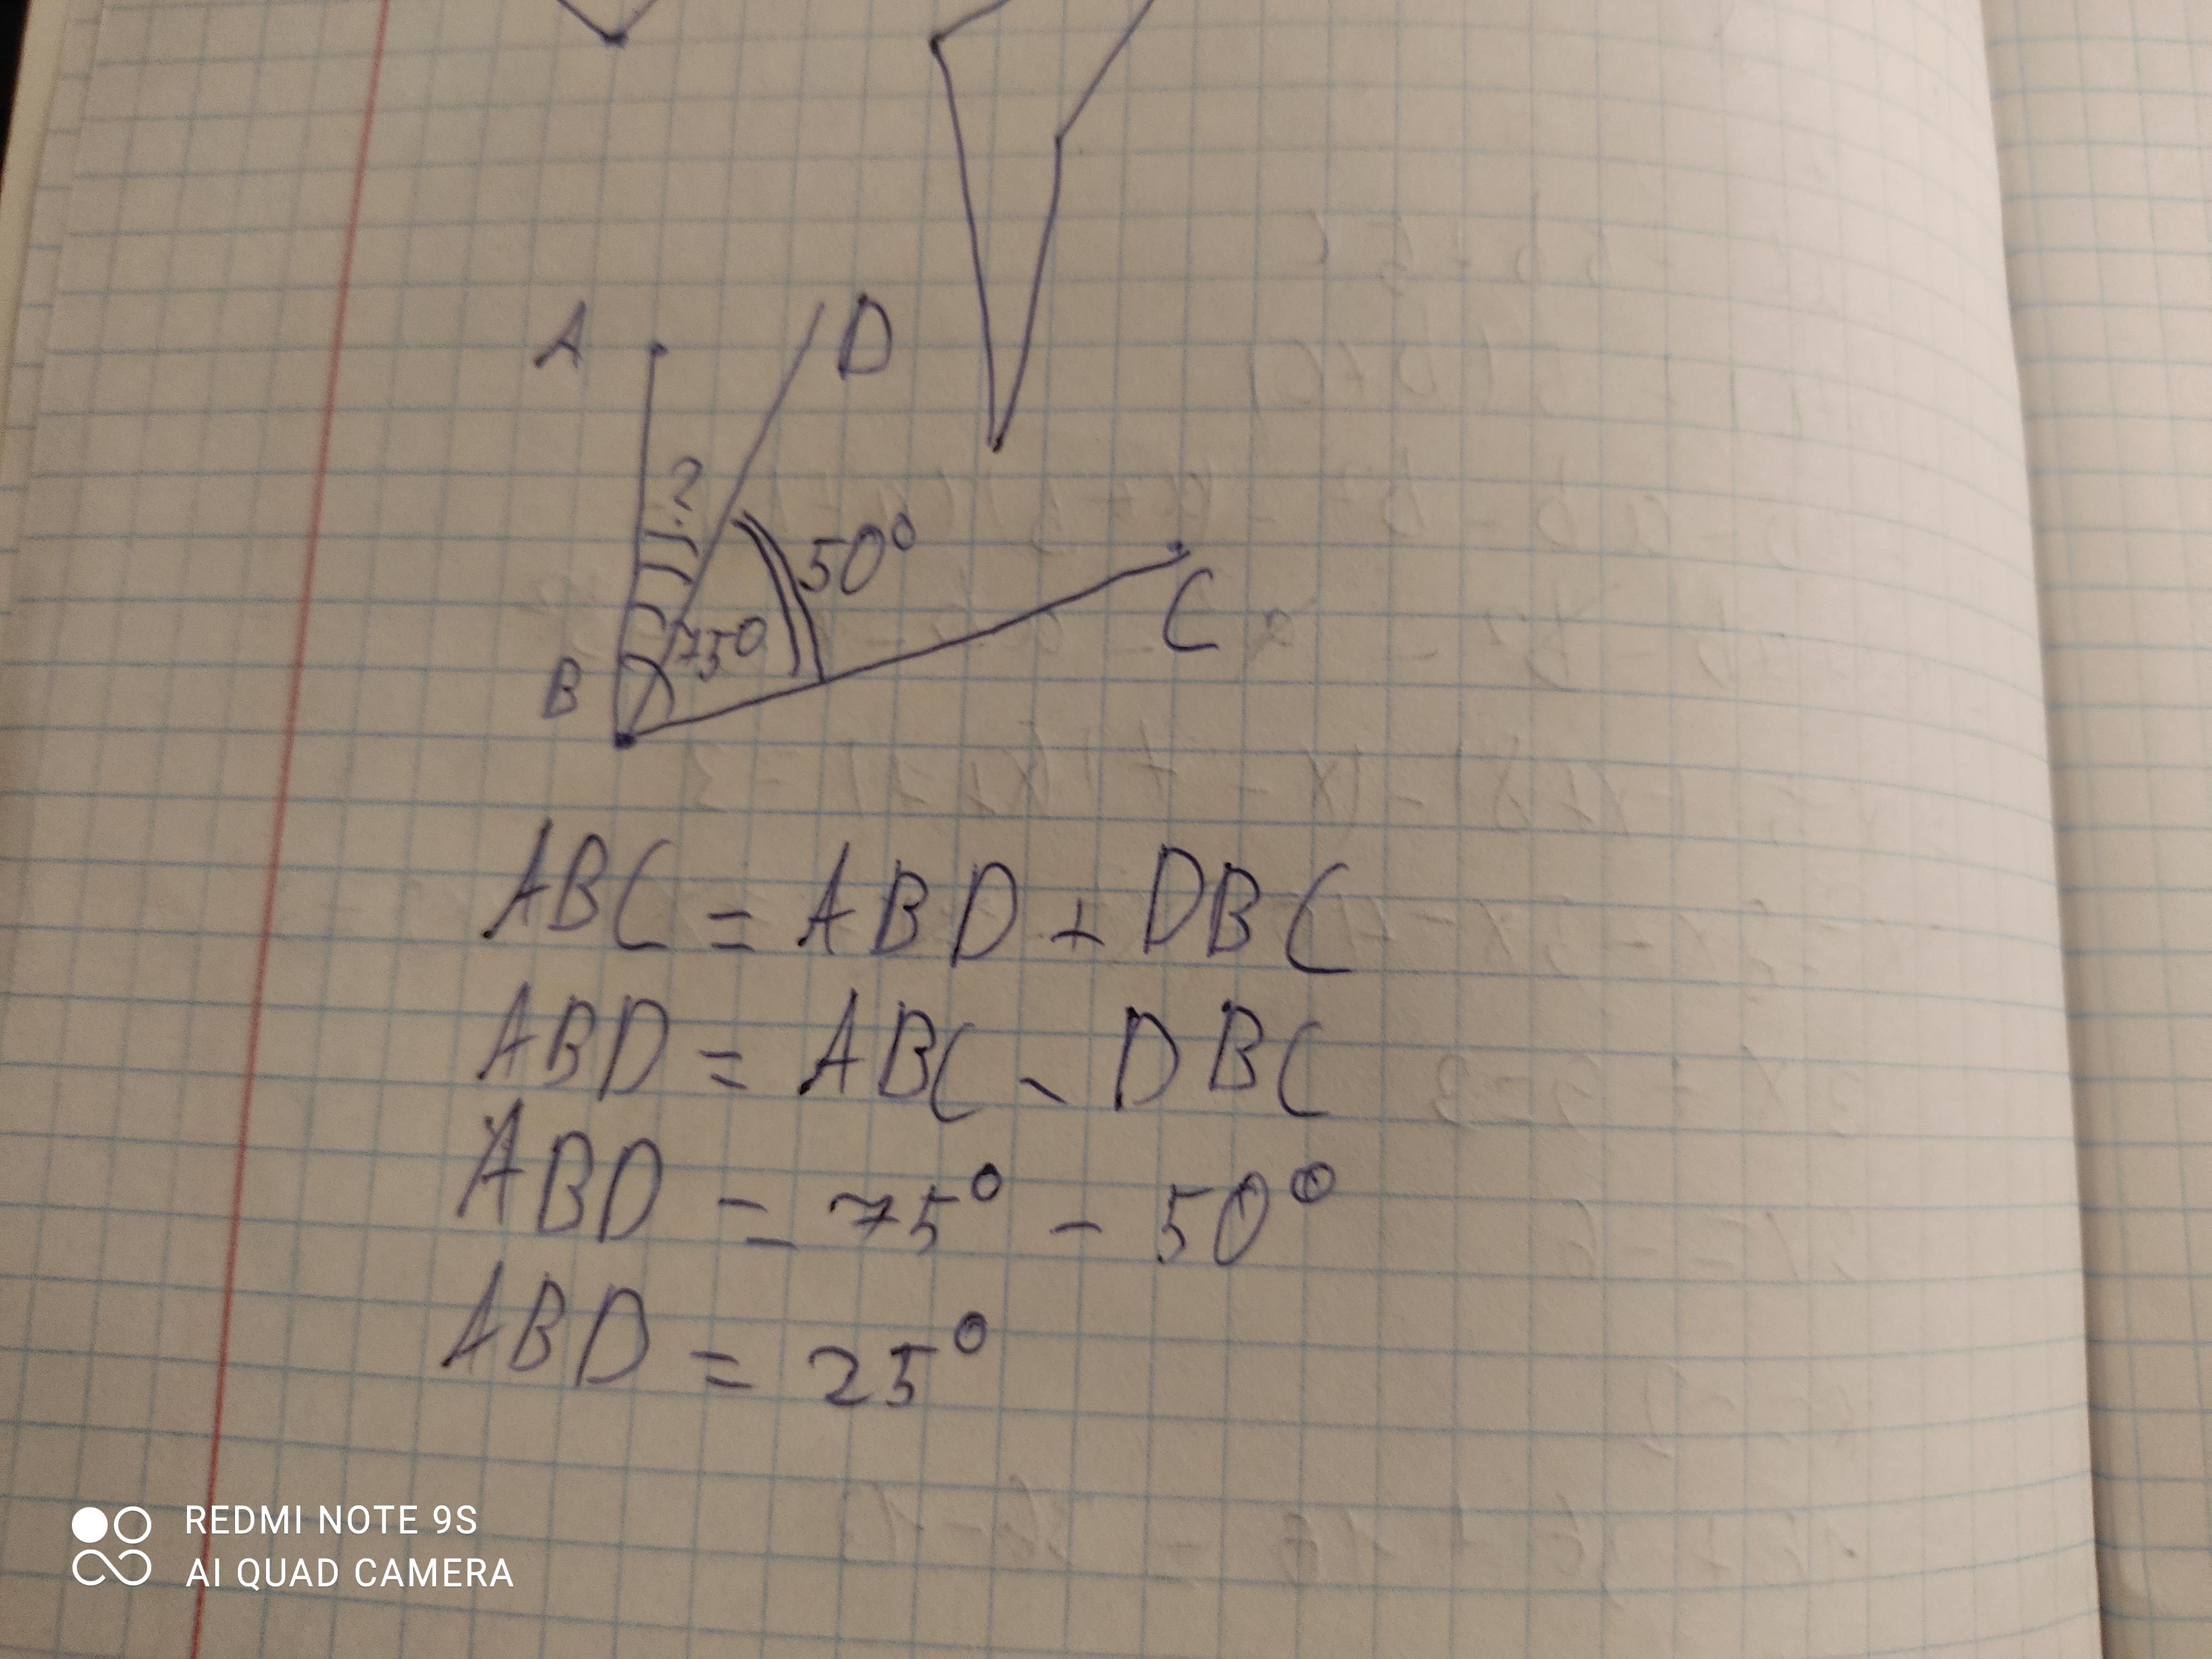 A D
?
50°
C
75°
B
ABC = ABD + DBC
ABD = ABC - DBC
ABD = 75° - 50°
ABD = 25°
REDMI NOTE 9S
AI QUAD CAMERA